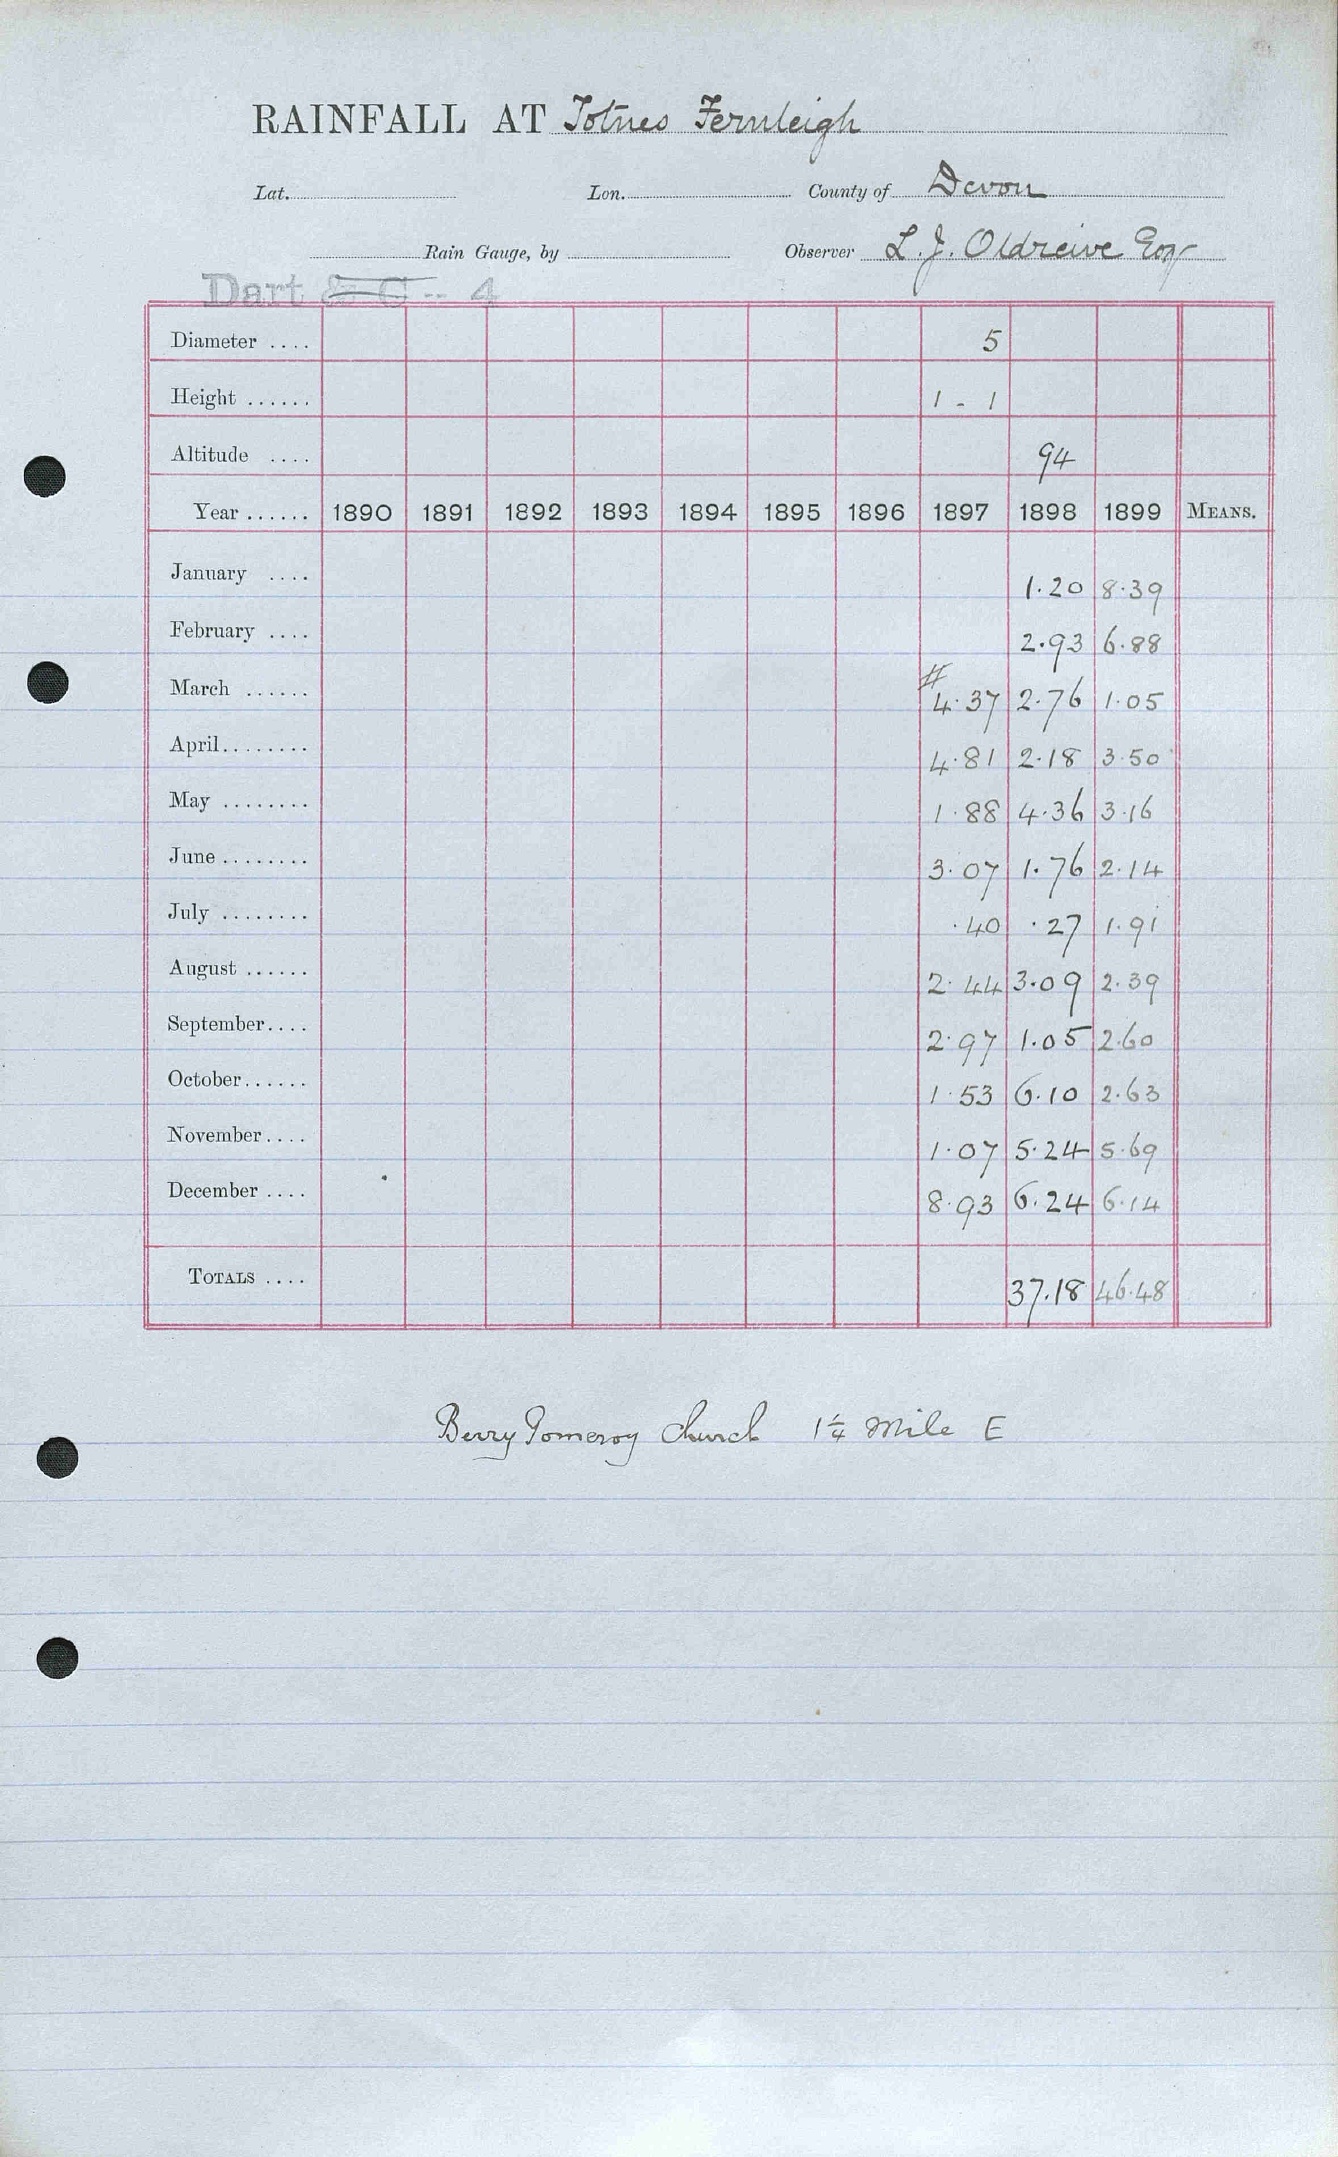 RAINFALL AT Totnes Fernleigh
Lat. Lon. County of Devon
Rain Gauge, by Observer L. J. Oldreive Esq
Dart & C -- 4
Diameter .... 5
Height ...... 1 - 1
Altitude .... 94
Year ...... 1890 1891 1892 1893 1894 1895 1896 1897 1898 1899 MEANS.
January .... 1.20 8.39
February .... 2.93 6.88
March ...... # 4.37 2.76 1.05
April........ 4.81 2.18 3.50
May ........ 1.88 4.36 3.16
June ........ 3.07 1.76 2.14
July ........ .40 .27 1.91
August ...... 2.44 3.09 2.39
September.... 2.97 1.05 2.60
October...... 1.53 6.10 2.63
November.... 1.07 5.24 5.69
December .... 8.93 6.24 6.14
TOTALS .... 37.18 46.48
Berry Pomeroy Church 1¼ Mile E